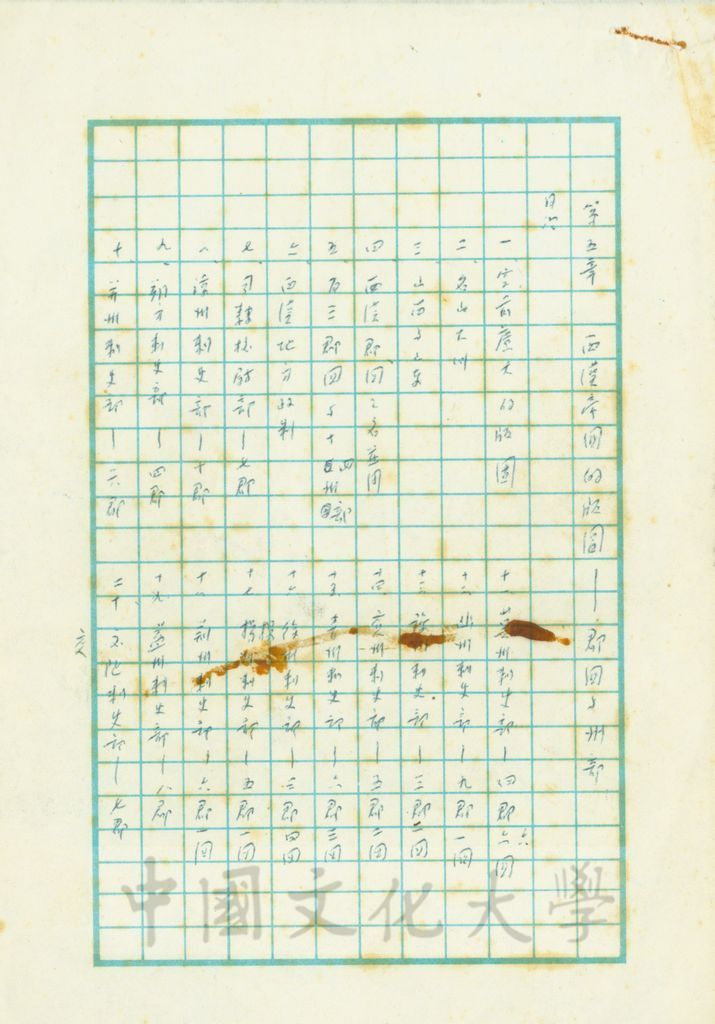 第五章 西漢帝國的版圖——郡國与州部
目次
一、空前廣大的版圖
二、名山大川
三、山西与山東
四、西漢郡國之名在国
五、百三郡國与十四州部
六、西漢地方政制
七、司隸校尉部—七郡
八、涼州刺史部—十郡
九、朔方刺史部—四郡
十、并州刺史部—六郡
十一、冀州刺史部—四郡六國
十二、幽州刺史部—九郡一國
十三、兗州刺史部—三郡二國
十四、刺史部—五郡二國
十五、青州刺史部—六郡三國
十六、徐州刺史部—三郡四國
十七、揚州刺史部—五郡一國
十八、荊州刺史部—六郡一國
十九、益州刺史部—八郡
二十、交阯刺史部—七郡
中國文化大學